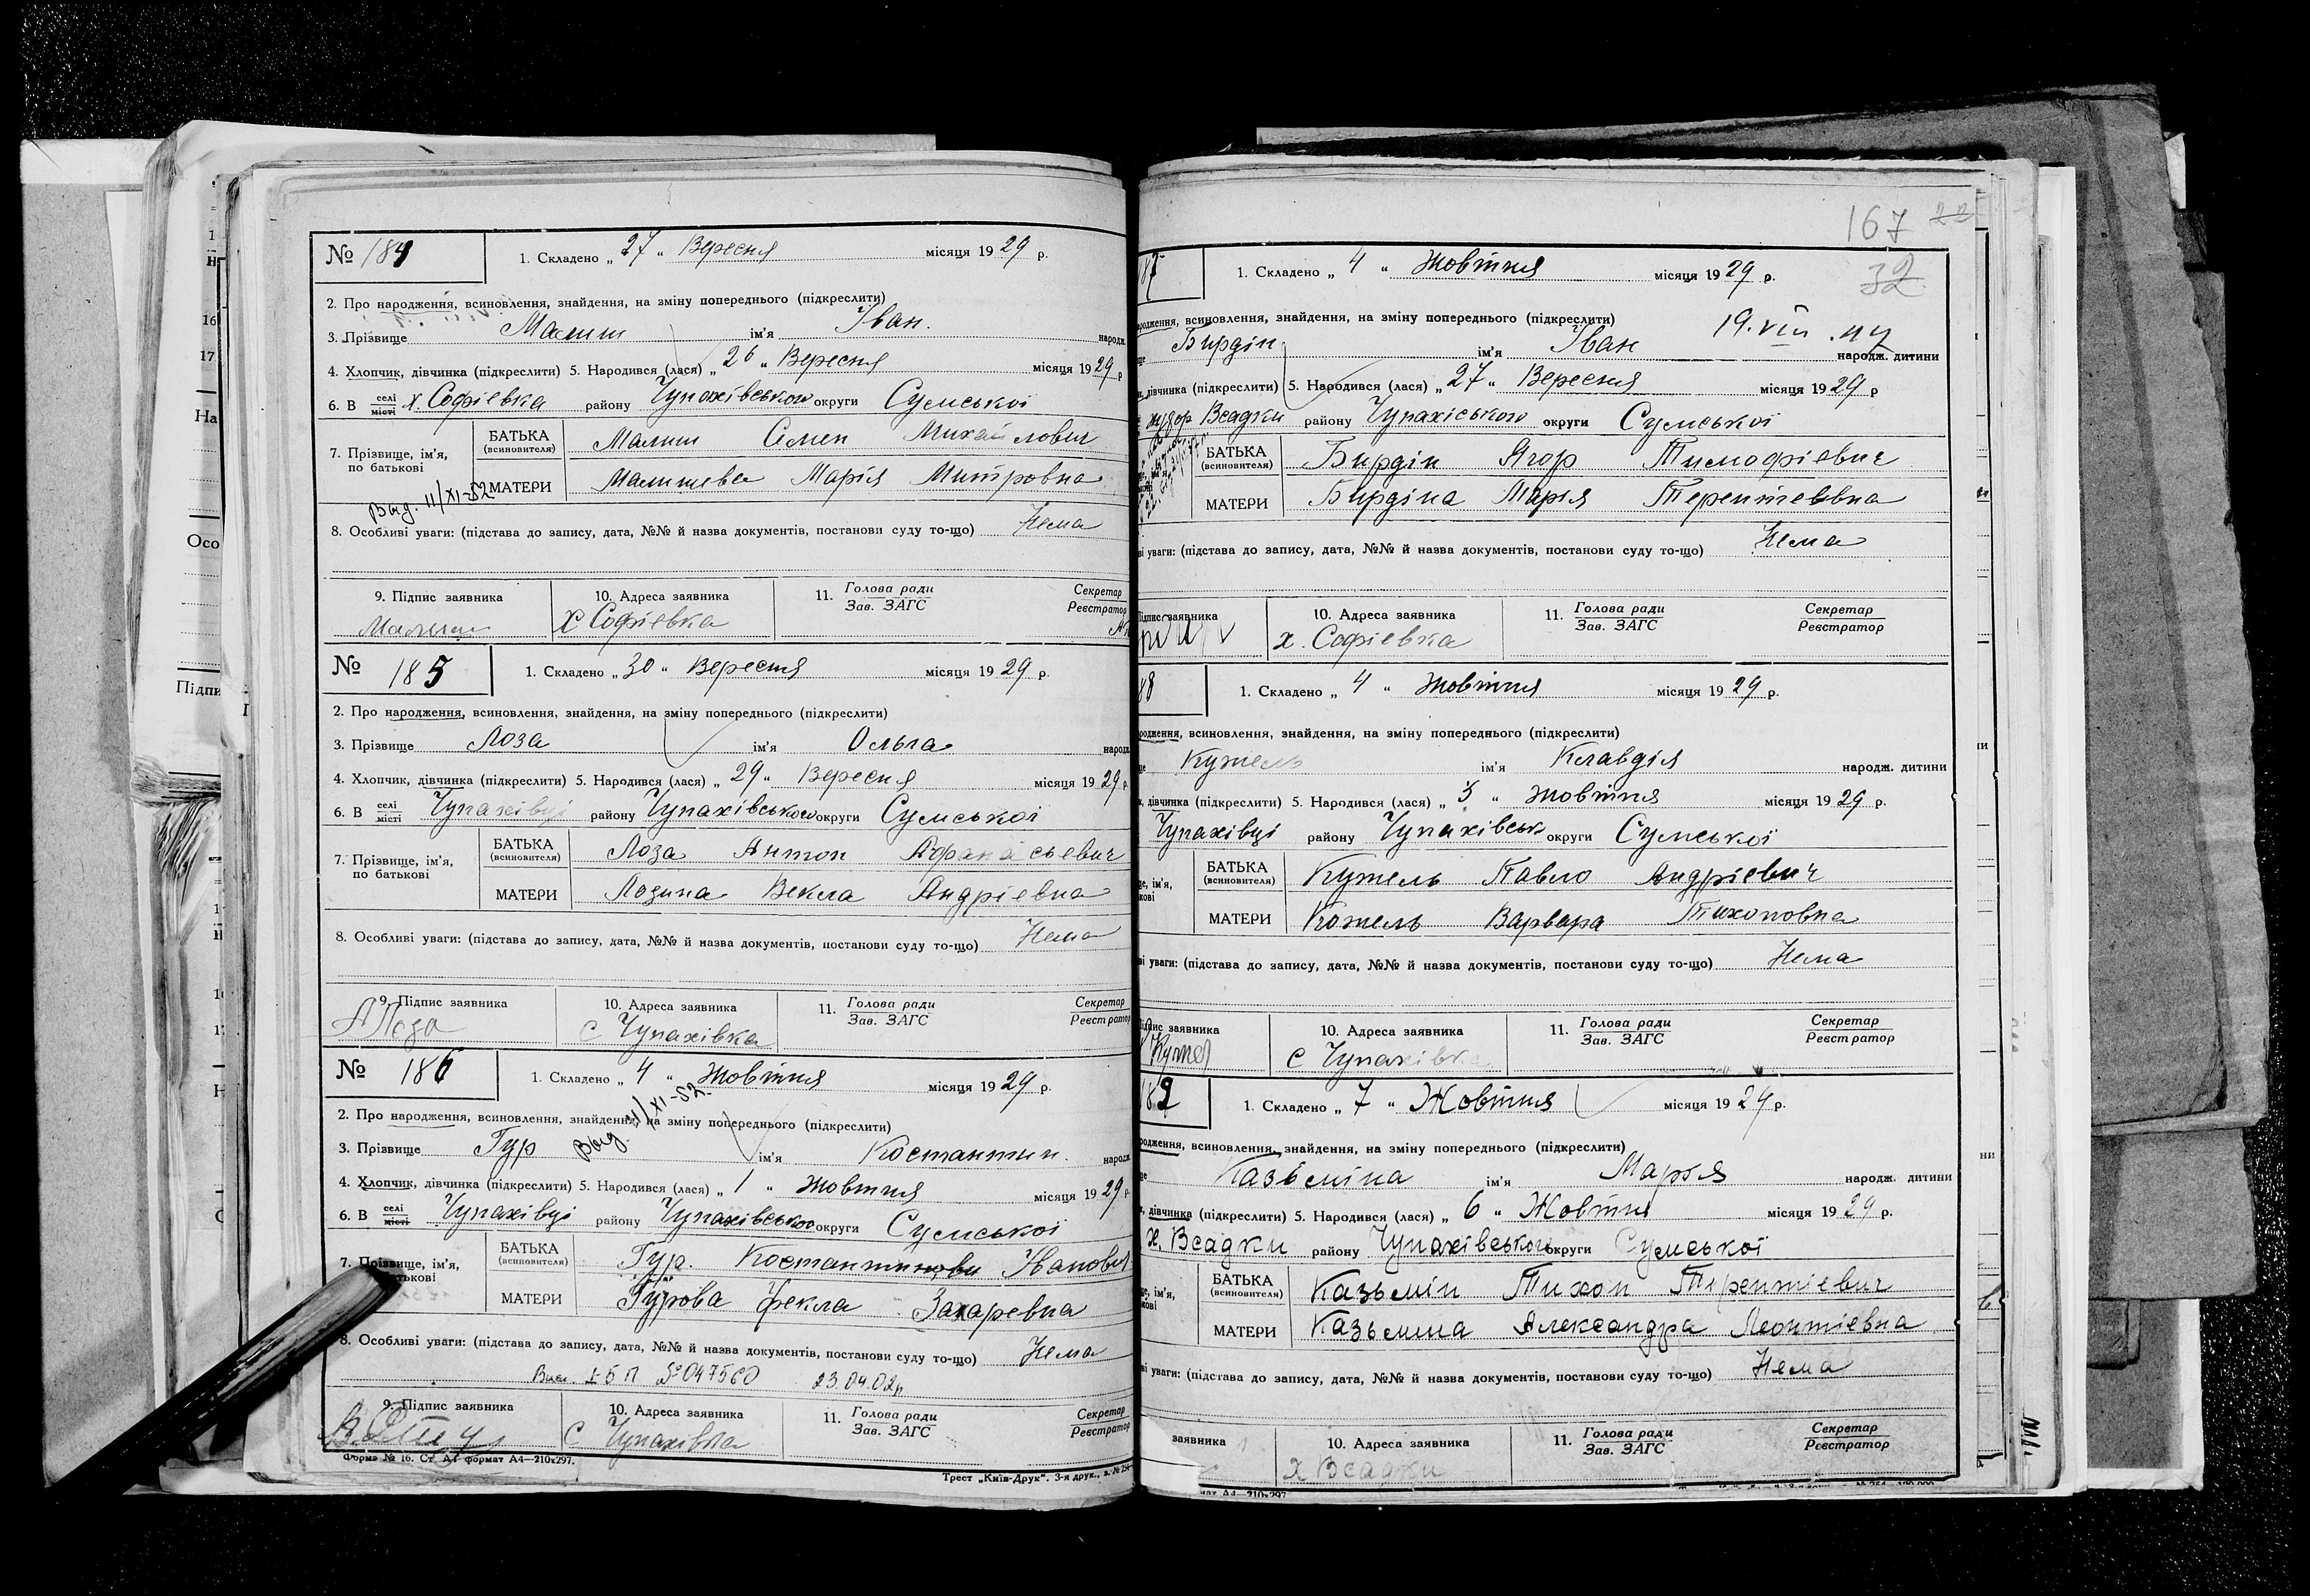 № 184
1. Складено „ 27 “ Вересня місяця 19 29 р.
2. Про народження, всиновлення, знайдення, на зміну попереднього (підкреслити)
3. Прізвище Малиш ім'я Іван. народж.
4. Хлопчик, дівчинка (підкреслити) 5. Народився (лася) „ 26 “ Вересня місяця 19 29 р
6. В селі місті х. Софієвка району Чупахівського округи Сумської
7. Прізвище, ім'я, по батькові
БАТЬКА (всиновителя) Малиш Семен Михайлович
МАТЕРИ Малишева Марія Митровна
Выд. 11/XI-52
8. Особливі уваги: (підстава до запису, дата, №№ й назва документів, постанови суду то-що) Нема
9. Підпис заявника 10. Адреса заявника 11. Голова ради Зав. ЗАГС Секретар Реєстратор
Малиш х Софієвка
№ 185
1. Складено „ 30 “ Вересня місяця 19 29 р.
2. Про народження, всиновлення, знайдення, на зміну попереднього (підкреслити)
3. Прізвище Лоза ім'я Ольга народж
4. Хлопчик, дівчинка (підкреслити) 5. Народився (лася) „ 29 “ Вересня місяця 19 29 р.
6. В селі місті Чупахівці району Чупахівського округи Сумської
7. Прізвище, ім'я, по батькові
БАТЬКА (всиновителя) Лоза Антон Афанасьевич
МАТЕРИ Лозина Векла Андрієвна
8. Особливі уваги: (підстава до запису, дата, №№ й назва документів, постанови суду то-що) Нема
9. Підпис заявника 10. Адреса заявника 11. Голова ради Зав. ЗАГС Секретар Реєстратор
А Лоза с Чупахівка
№ 186
1. Складено „ 4 “ Жовтня місяця 19 29 р.
2. Про народження, всиновлення, знайдення, на зміну попереднього (підкреслити)
Выд. 11/XI-52
3. Прізвище Гур ім'я Костантин. народж
4. Хлопчик, дівчинка (підкреслити) 5. Народився (лася) „ 1 “ Жовтня місяця 19 29 р.
6. В селі місті Чупахівці району Чупахівського округи Сумської
7. Прізвище, ім'я, по батькові
БАТЬКА (всиновителя) Гур. Костантинови Іванович
МАТЕРИ Гурова Фекла Захаревна
8. Особливі уваги: (підстава до запису, дата, №№ й назва документів, постанови суду то-що) Нема
№ 047560 23.04.02р
9. Підпис заявника 10. Адреса заявника 11. Голова ради Зав. ЗАГС Секретар Реєстратор
с Чупахівка
Форма № 16. Ст. А4 формат А4—210х297.
Трест „Київ-Друк“. 3-я друк.,
167 22
32
87
1. Складено „ 4 “ Жовтня місяця 19 29 р.
родження, всиновлення, знайдення, на зміну попереднього (підкреслити)
19. VIII
Бирдін ім'я Іван народж. дитини
дівчинка (підкреслити) 5. Народився (лася) „ 27 “ Вересня місяця 19 29 р
хутор Всадки району Чупахіського округи Сумської
БАТЬКА (всиновителя) Бирдін Ягор Тимофієвич
МАТЕРИ Бирдіна Марія Терентевна
уваги: (підстава до запису, дата, №№ й назва документів, постанови суду то-що) Нема
Підпис заявника 10. Адреса заявника 11. Голова ради Зав. ЗАГС Секретар Реєстратор
х. Софієвка
88
1. Складено „ 4 “ Жовтня місяця 19 29 р.
родження, всиновлення, знайдення, на зміну попереднього (підкреслити)
Кужель ім'я Клавдія народж. дитини
дівчинка (підкреслити) 5. Народився (лася) „ 3 “ Жовтня місяця 19 29 р.
Чупахівці району Чупахівськ округи Сумської
БАТЬКА (всиновителя) Кужель Павло Андрієвич
МАТЕРИ Кожель Варвара Тихоновна
уваги: (підстава до запису, дата, №№ й назва документів, постанови суду то-що) Нема
Підпис заявника 10. Адреса заявника 11. Голова ради Зав. ЗАГС Секретар Реєстратор
Кужел с Чупахівка
189
1. Складено „ 7 “ Жовтня місяця 19 29 р.
родження, всиновлення, знайдення, на зміну попереднього (підкреслити)
Казьміна ім'я Марія народж. дитини
дівчинка (підкреслити) 5. Народився (лася) „ 6 “ Жовтня місяця 19 29 р.
х. Всадки району Чупахівського округи Сумської
БАТЬКА (всиновителя) Казьмін Тихон Терентієвич
МАТЕРИ Казьмина Александра Леонтієвна
уваги: (підстава до запису, дата, №№ й назва документів, постанови суду то-що) Нема
заявника 10. Адреса заявника 11. Голова ради Зав. ЗАГС Секретар Реєстратор
х Всадки